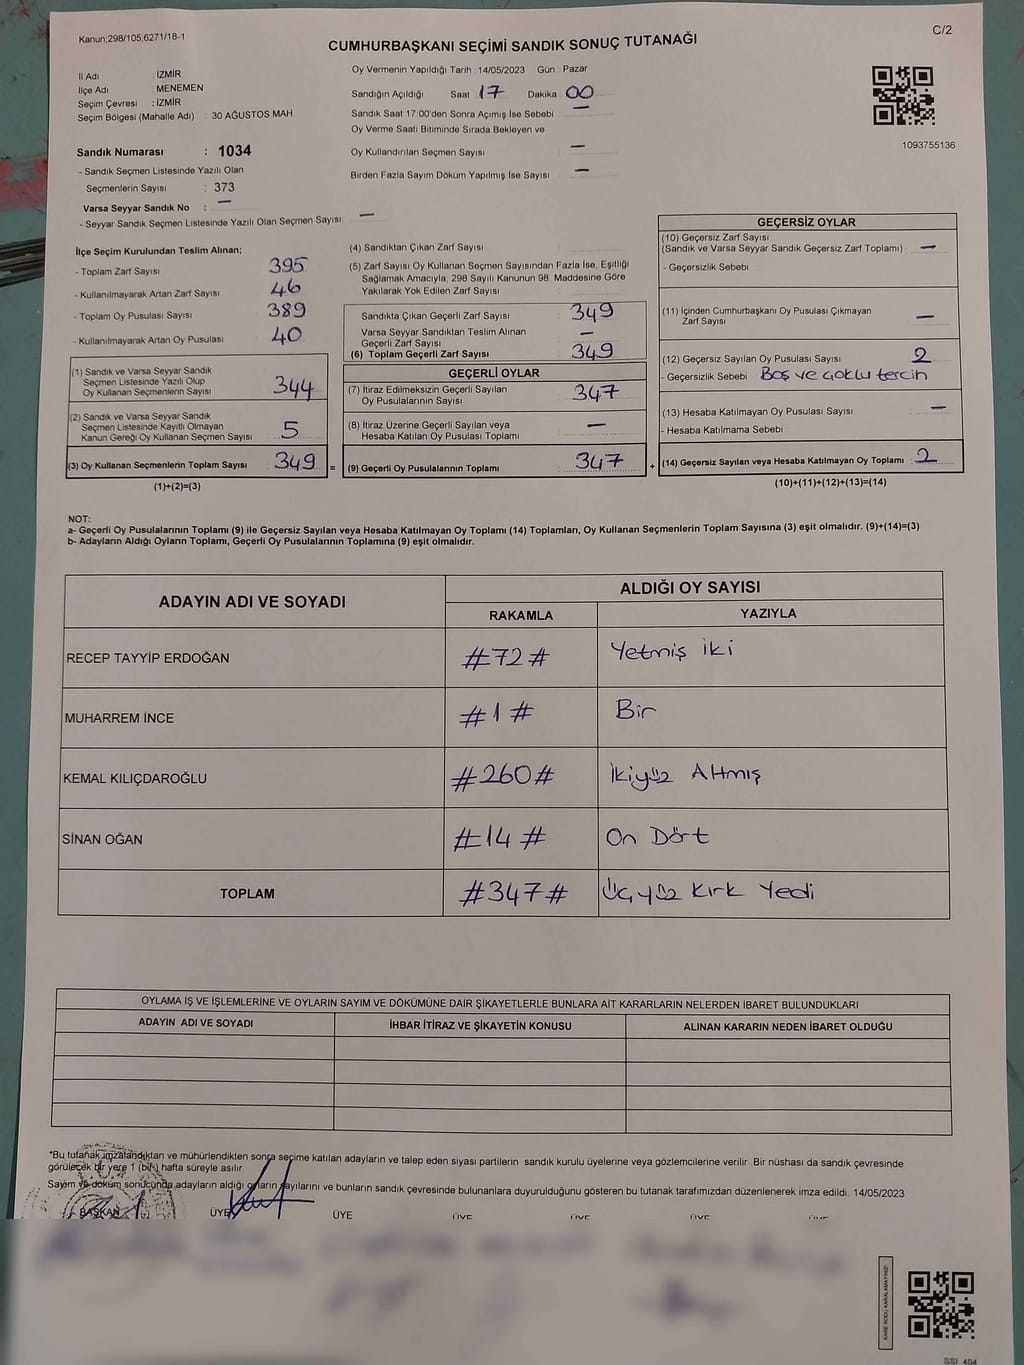 Kanun;298/105;6271/18-1
C/2
CUMHURBAŞKANI SEÇİMİ SANDIK SONUÇ TUTANAĞI
İl Adı : İZMİR
İlçe Adı : MENEMEN
Seçim Çevresi : İZMİR
Seçim Bölgesi (Mahalle Adı) : 30 AĞUSTOS MAH
Oy Vermenin Yapıldığı Tarih : 14/05/2023 Gün : Pazar
Sandığın Açıldığı Saat 17 Dakika 00
Sandık Saat 17:00'den Sonra Açımış İse Sebebi : —
Oy Verme Saati Bitiminde Sırada Bekleyen ve
Oy Kullandırılan Seçmen Sayısı : —
Birden Fazla Sayım Döküm Yapılmış İse Sayısı : —
1093755136
Sandık Numarası : 1034
- Sandık Seçmen Listesinde Yazılı Olan
Seçmenlerin Sayısı : 373
Varsa Seyyar Sandık No : —
- Seyyar Sandık Seçmen Listesinde Yazılı Olan Seçmen Sayısı: —
İlçe Seçim Kurulundan Teslim Alınan;
- Toplam Zarf Sayısı : 395
- Kullanılmayarak Artan Zarf Sayısı : 46
- Toplam Oy Pusulası Sayısı : 389
- Kullanılmayarak Artan Oy Pusulası : 40
(1) Sandık ve Varsa Seyyar Sandık
Seçmen Listesinde Yazılı Olup
Oy Kullanan Seçmenlerin Sayısı : 344
(2) Sandık ve Varsa Seyyar Sandık
Seçmen Listesinde Kayıtlı Olmayan
Kanun Gereği Oy Kullanan Seçmen Sayısı : 5
(3) Oy Kullanan Seçmenlerin Toplam Sayısı : 349 =
(1)+(2)=(3)
(4) Sandıktan Çıkan Zarf Sayısı :
(5) Zarf Sayısı Oy Kullanan Seçmen Sayısından Fazla İse, Eşitliği
Sağlamak Amacıyla, 298 Sayılı Kanunun 98. Maddesine Göre
Yakılarak Yok Edilen Zarf Sayısı :
Sandıkta Çıkan Geçerli Zarf Sayısı : 349
Varsa Seyyar Sandıktan Teslim Alınan
Geçerli Zarf Sayısı : —
(6) Toplam Geçerli Zarf Sayısı : 349
GEÇERLİ OYLAR
(7) İtiraz Edilmeksizin Geçerli Sayılan
Oy Pusulalarının Sayısı : 347
(8) İtiraz Üzerine Geçerli Sayılan veya
Hesaba Katılan Oy Pusulası Toplamı : —
(9) Geçerli Oy Pusulalarının Toplamı : 347 +
GEÇERSİZ OYLAR
(10) Geçersiz Zarf Sayısı
(Sandık ve Varsa Seyyar Sandık Geçersiz Zarf Toplamı) : —
- Geçersizlik Sebebi :
(11) İçinden Cumhurbaşkanı Oy Pusulası Çıkmayan
Zarf Sayısı : —
(12) Geçersiz Sayılan Oy Pusulası Sayısı : 2
- Geçersizlik Sebebi : Boş ve çoklu tercih
(13) Hesaba Katılmayan Oy Pusulası Sayısı : —
- Hesaba Katılmama Sebebi :
(14) Geçersiz Sayılan veya Hesaba Katılmayan Oy Toplamı : 2
(10)+(11)+(12)+(13)=(14)
NOT:
a- Geçerli Oy Pusulalarının Toplamı (9) ile Geçersiz Sayılan veya Hesaba Katılmayan Oy Toplamı (14) Toplamları, Oy Kullanan Seçmenlerin Toplam Sayısına (3) eşit olmalıdır. (9)+(14)=(3)
b- Adayların Aldığı Oyların Toplamı, Geçerli Oy Pusulalarının Toplamına (9) eşit olmalıdır.
ADAYIN ADI VE SOYADI ALDIĞI OY SAYISI
RAKAMLA YAZIYLA
RECEP TAYYİP ERDOĞAN #72# Yetmiş iki
MUHARREM İNCE #1# Bir
KEMAL KILIÇDAROĞLU #260# İkiyüz Altmış
SİNAN OĞAN #14# On Dört
TOPLAM #347# Üçyüz Kırk Yedi
OYLAMA İŞ VE İŞLEMLERİNE VE OYLARIN SAYIM VE DÖKÜMÜNE DAİR ŞİKAYETLERLE BUNLARA AİT KARARLARIN NELERDEN İBARET BULUNDUKLARI
ADAYIN ADI VE SOYADI İHBAR İTİRAZ VE ŞİKAYETİN KONUSU ALINAN KARARIN NEDEN İBARET OLDUĞU
*Bu tutanak imzalandıktan ve mühürlendikten sonra seçime katılan adayların ve talep eden siyasi partilerin sandık kurulu üyelerine veya gözlemcilerine verilir. Bir nüshası da sandık çevresinde
görülecek bir yere 1 (bir) hafta süreyle asılır.
Sayım ve döküm sonucunda adayların aldığı oyların sayılarını ve bunların sandık çevresinde bulunanlara duyurulduğunu gösteren bu tutanak tarafımızdan düzenlenerek imza edildi. 14/05/2023
BAŞKAN ÜYE ÜYE ÜYE ÜYE ÜYE ÜYE
KARE KODU KARALAMAYINIZ!
SSI 404